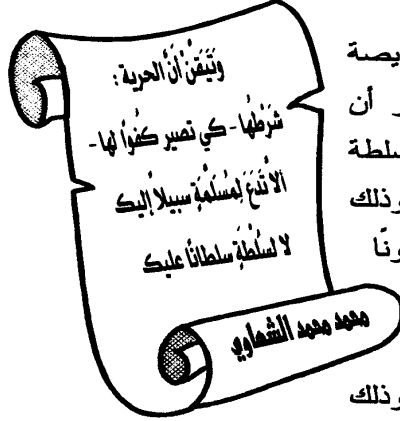 وَتَيَقَّنْ أنَّ الحرية :
شَرْطُها - كي تصير كفُواً لها -
ألا تَدَعَ لِمُسَلَّمَةٍ سبيلاً إليك
لا لسُلْطَةٍ سلطانًا عليك
محمد محمد الشهاوي
يصة
أن
سلطة
وذلك
ونًا
وذلك